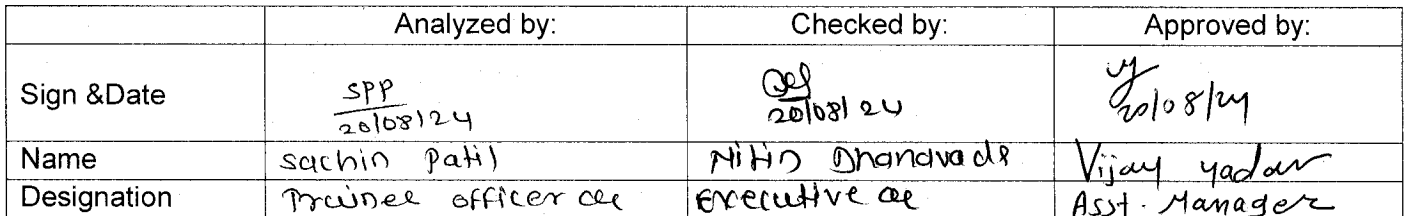 Analyzed by: Checked by: Approved by:
Sign &Date SPP 20/08/24 20/08/24 20/08/24
Name Sachin Patil Nitin Dhanavade Vijay Yadav
Designation Trainee officer Executive Asst. Manager